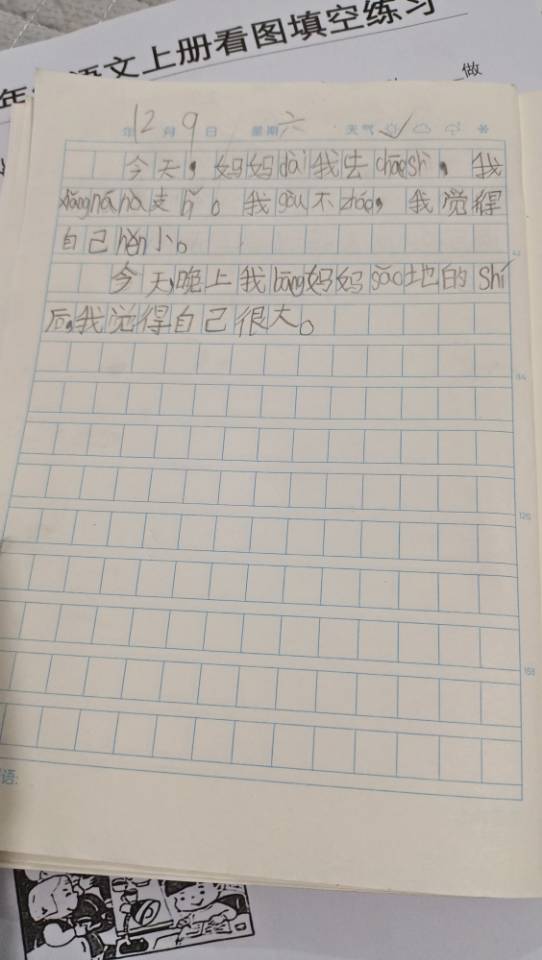 语文上册看图填空练习
做
年 12 月 9 日 星期 六 天气
今天，妈妈dài我去chāoshì，我
xiǎngnánà支bǐ。我gòu不zháo，我觉得
自己hěn小。
42
今天，晚上我bāng妈妈sǎo地的shí
后，我觉得自己很大。
84
126
168
语: